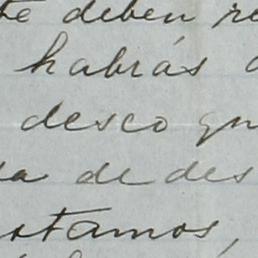 te deben re
habrás
deseo qu
da de des
stamos,